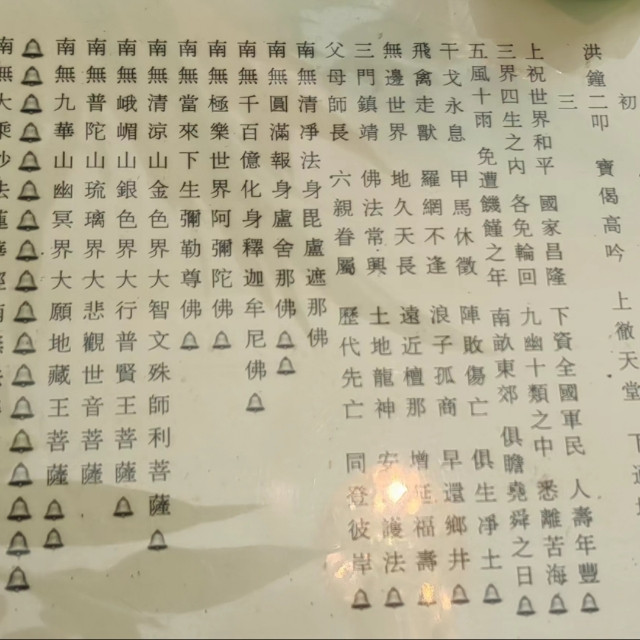 初
三
洪鐘二叩 寶偈高吟 上徹天堂 下通
上祝世界和平 國家昌隆 下資全國軍民 人壽年豐
三界四生之內 各免輪回 九幽十類之中 悉離苦海
五風十雨 免遭饑饉之年 南畝東郊 俱瞻堯舜之日
干戈永息 甲馬休徵 陣敗傷亡 俱生凈土
飛禽走獸 羅網不逢 浪子孤商 早還鄉井
無邊世界 地久天長 遠近檀那 增延福壽
三門鎮靖 佛法常興 土地龍神 安 護法
父母師長 六親眷屬 歷代先亡 同登彼岸
南無清凈法身毘盧遮那佛
南無圓滿報身盧舍那佛
南無千百億化身釋迦牟尼佛
南無極樂世界阿彌陀佛
南無當來下生彌勒尊佛
南無清涼山金色界大智文殊師利菩薩
南無峨嵋山銀色界大行普賢王菩薩
南無普陀山琉璃界大悲觀世音菩薩
南無九華山幽冥界大願地藏王菩薩
南無大乘妙法蓮華經